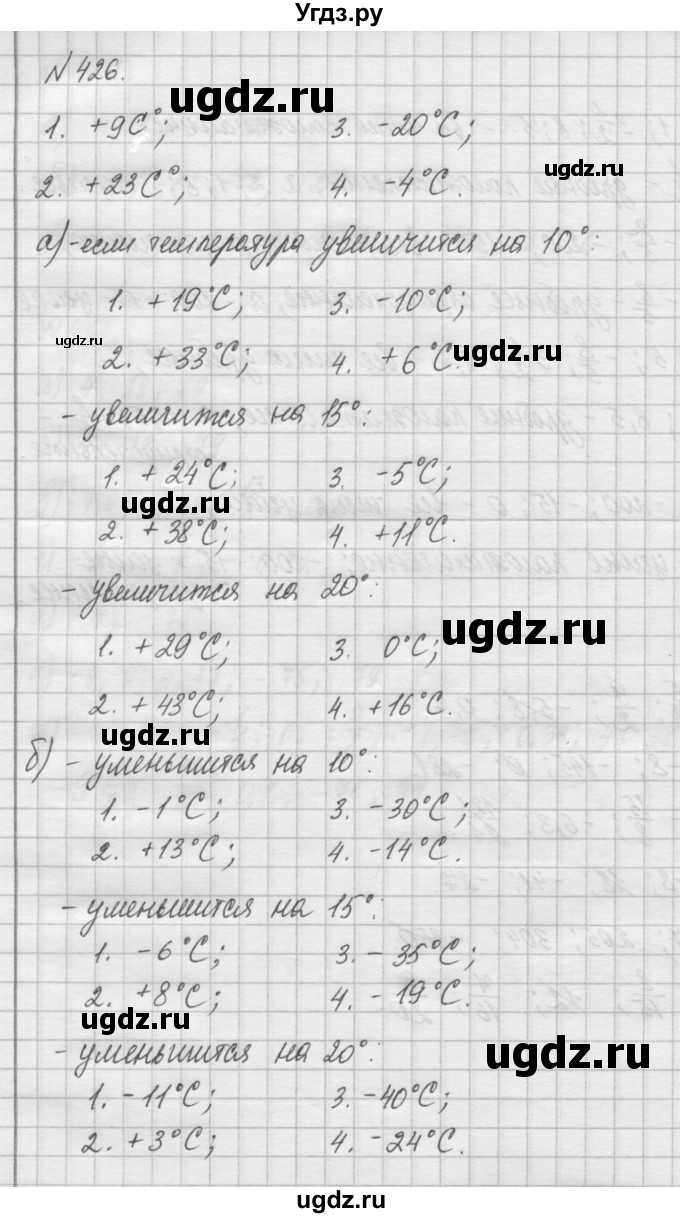 Угдз.ру
№ 426.
ugdz.ru
1. +9С°; 3. -20°С;
ugdz.ru
2. +23С°; 4. -4°С.
а) -если температура увеличится на 10°:
1. +19°С; 3. -10°С;
ugdz.ru ugdz.ru
2. +33°С; 4. +6°С.
- увеличится на 15°:
1. +24°С; 3. -5°С;
ugdz.ru
2. +38°С; 4. +11°С.
- увеличится на 20°:
ugdz.ru
1. +29°С; 3. 0°С;
2. +43°С; 4. +16°С.
ugdz.ru
б) - уменьшится на 10°:
1. -1°С; 3. -30°С;
2. +13°С; 4. -14°С.
- уменьшится на 15°:
1. -6°С; 3. -35°С;
2. +8°С; 4. -19°С.
ugdz.ru
- уменьшится на 20°:
ugdz.ru
1. -11°С; 3. -40°С;
2. +3°С; 4. -24°С.
ugdz.ru